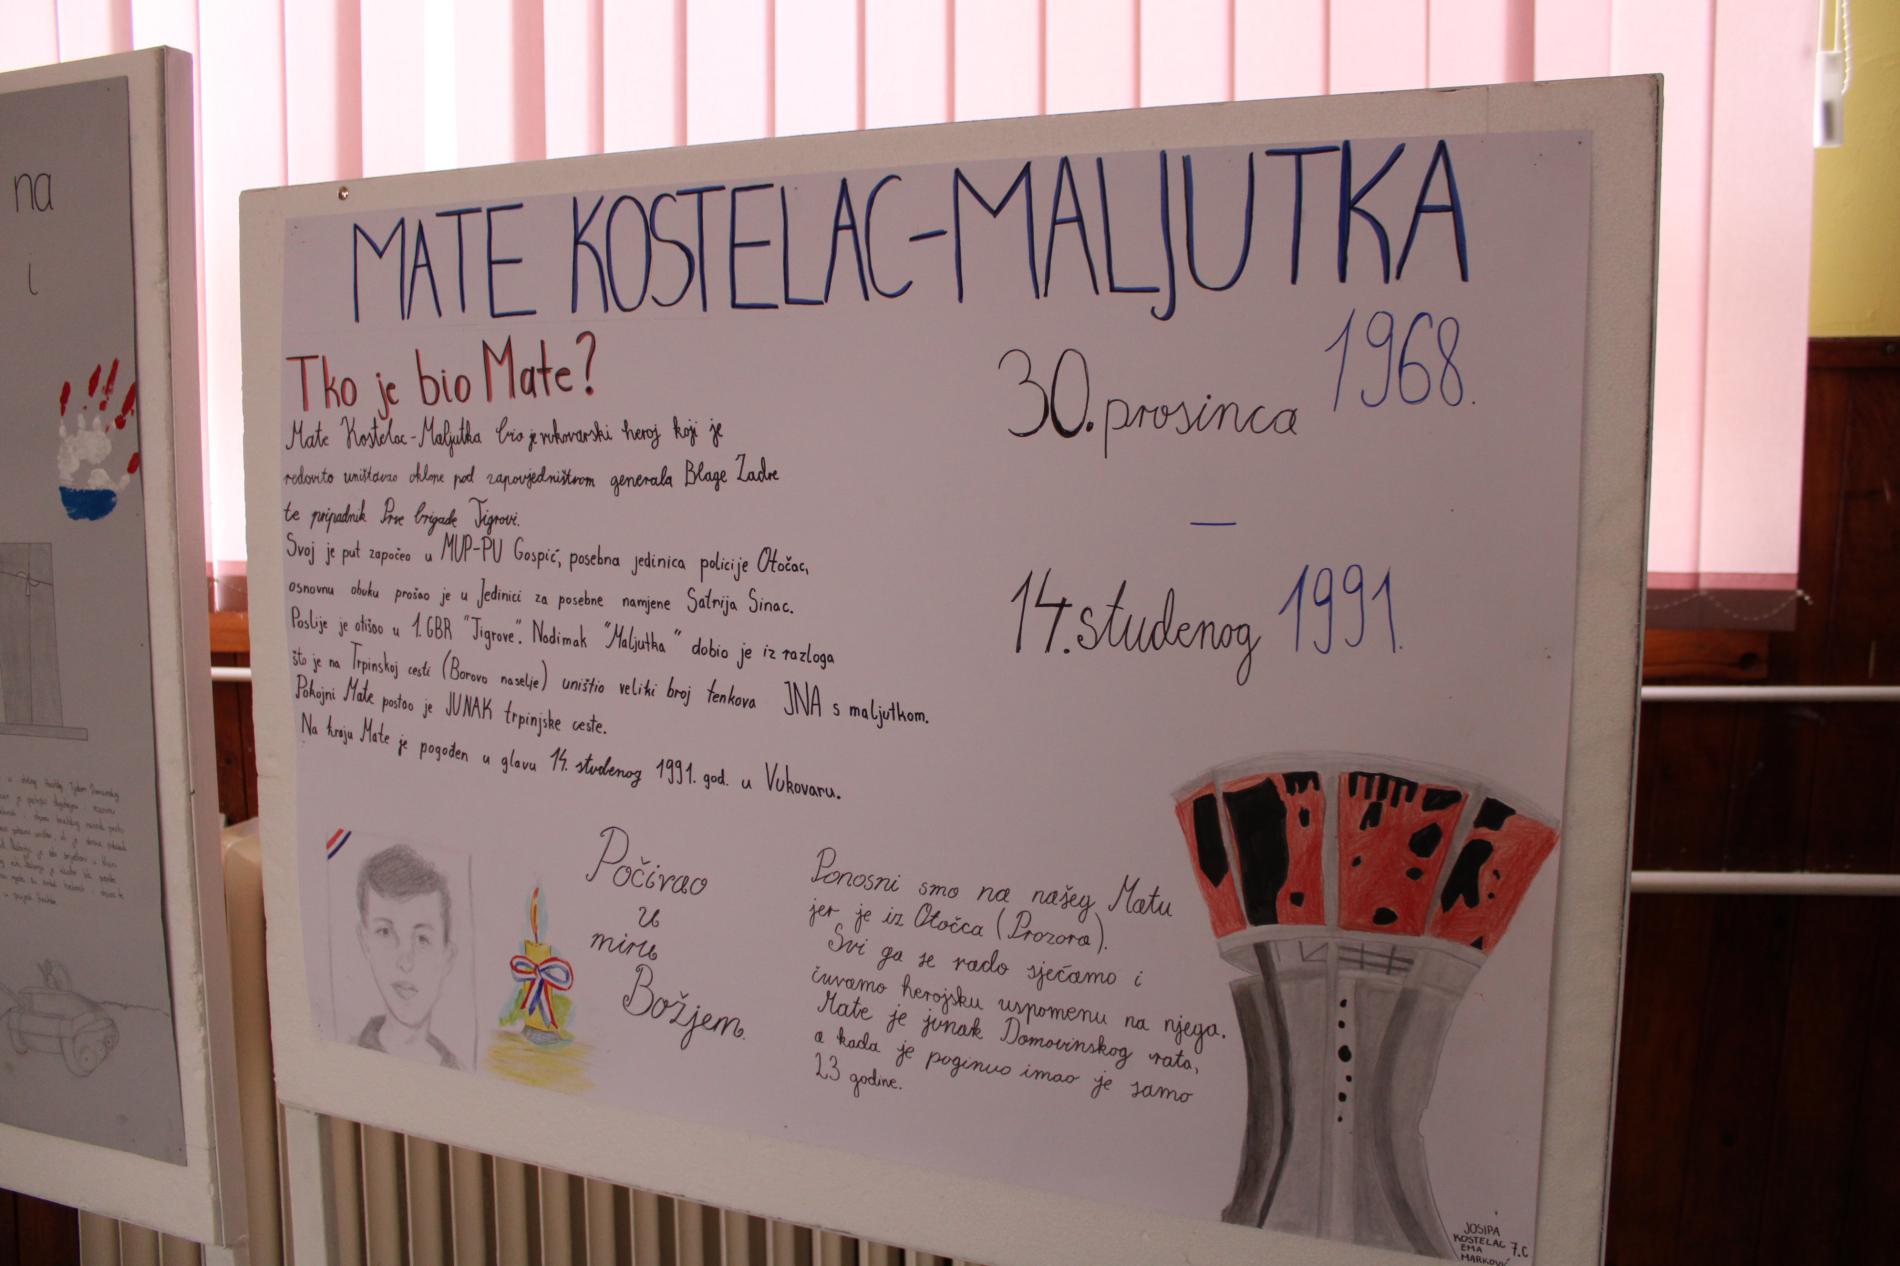 na
i
MATE KOSTELAC-MALJUTKA
Tko je bio Mate?
Mate Kostelac-Maljutka bio je vukovarski heroj koji je
redovito uništavao oklope pod zapovjedništvom generala Blage Zadre
te pripadnik Prve brigade Tigrovi.
Svoj je put započeo u MUP-PU Gospić, posebna jedinica policije Otočac,
osnovnu obuku prošao je u Jedinici za posebne namjene Satrija Sinac.
Poslije je otišao u 1.GBR "Tigrove". Nadimak "Maljutka" dobio je iz razloga
što je na Trpinskoj cesti (Borovo naselje) uništio veliki broj tenkova JNA s maljutkom.
Pokojni Mate postao je JUNAK trpinjske ceste.
Na kraju Mate je pogođen u glavu 14. studenog 1991. god. u Vukovaru.
30. prosinca 1968.
—
14. studenog 1991.
Počivao
u
miru
Božjem.
Ponosni smo na našeg Matu
jer je iz Otočca (Prozora).
Svi ga se rado sjećamo i
čuvamo herojsku uspomenu na njega.
Mate je junak Domovinskog rata,
a kada je poginuo imao je samo
23 godine.
JOSIPA
KOSTELAC 7.C
EMA
MARKOVIĆ